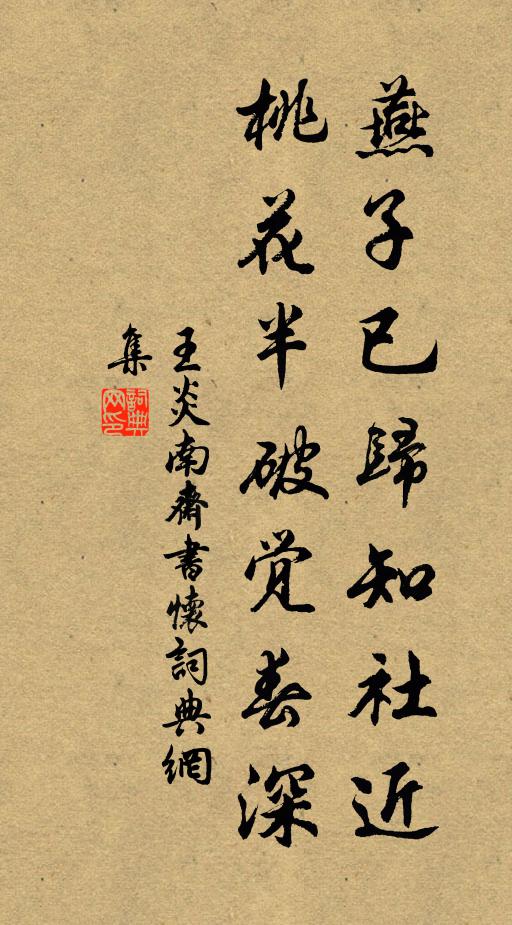 燕子已歸知社近
桃花半破觉春深
王炎南齋書懷詞典網
集
詞典网印